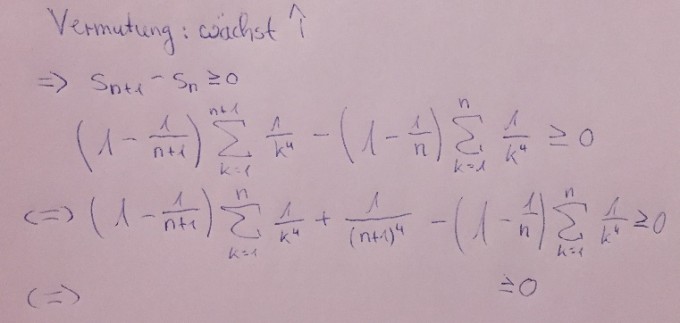 Vermutung: wächst ↑
=> S_{n+1} - S_n ≥ 0
(1 - \frac{1}{n+1}) \sum_{k=1}^{n+1} \frac{1}{k^4} - (1 - \frac{1}{n}) \sum_{k=1}^{n} \frac{1}{k^4} ≥ 0
<=> (1 - \frac{1}{n+1}) \sum_{k=1}^{n} \frac{1}{k^4} + \frac{1}{(n+1)^4} - (1 - \frac{1}{n}) \sum_{k=1}^{n} \frac{1}{k^4} ≥ 0
<=> ≥ 0